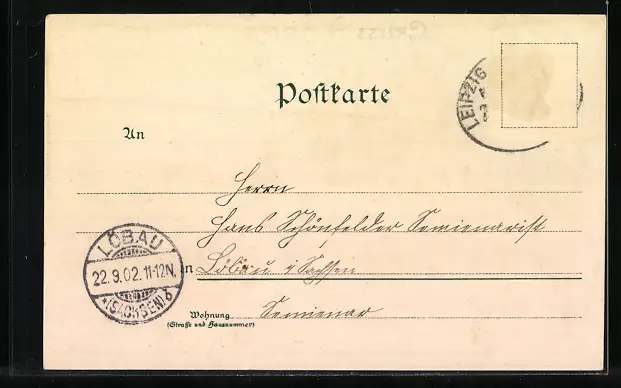 Postkarte
LEIPZIG
An
Herrn
Hans Schönfelder Semienarist
in Löbau i/Sachsen
Wohnung Semienar
(Straße und Hausnummer)
LÖBAU
22.9.02.11-12N.
*(SACHSEN)